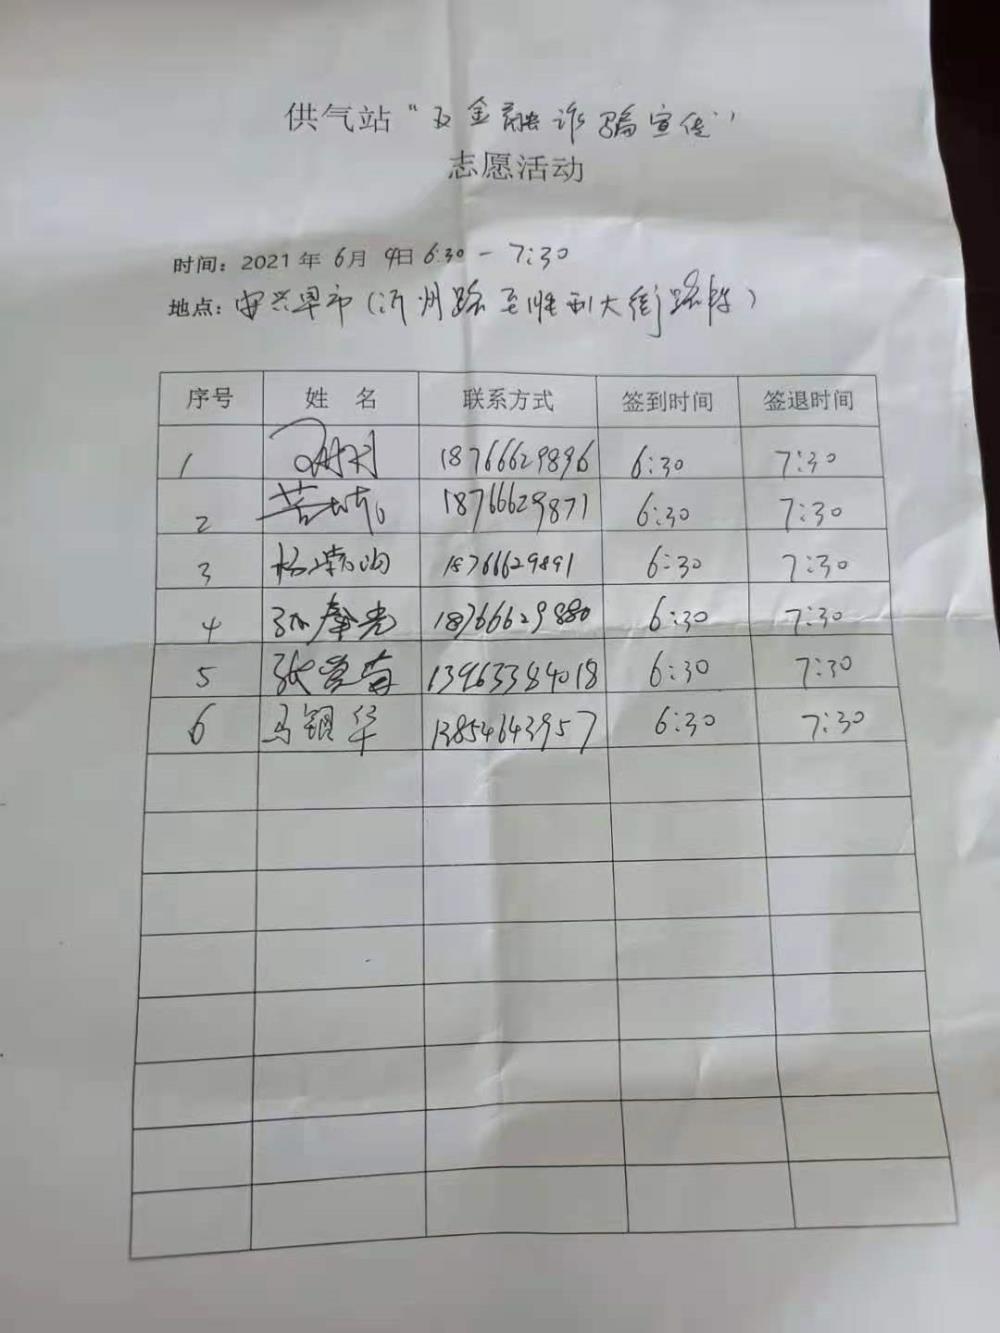 供气站“反金融诈骗宣传”
志愿活动
时间：2021年6月9日6:30-7:30
地点：安兴早市（沂州路至胜利大街路段）
序号 姓名 联系方式 签到时间 签退时间
1 18766629896 6:30 7:30
2 18766629871 6:30 7:30
3 18766629891 6:30 7:30
4 18766629880 6:30 7:30
5 张 13963384018 6:30 7:30
6 马 华 13854643957 6:30 7:30